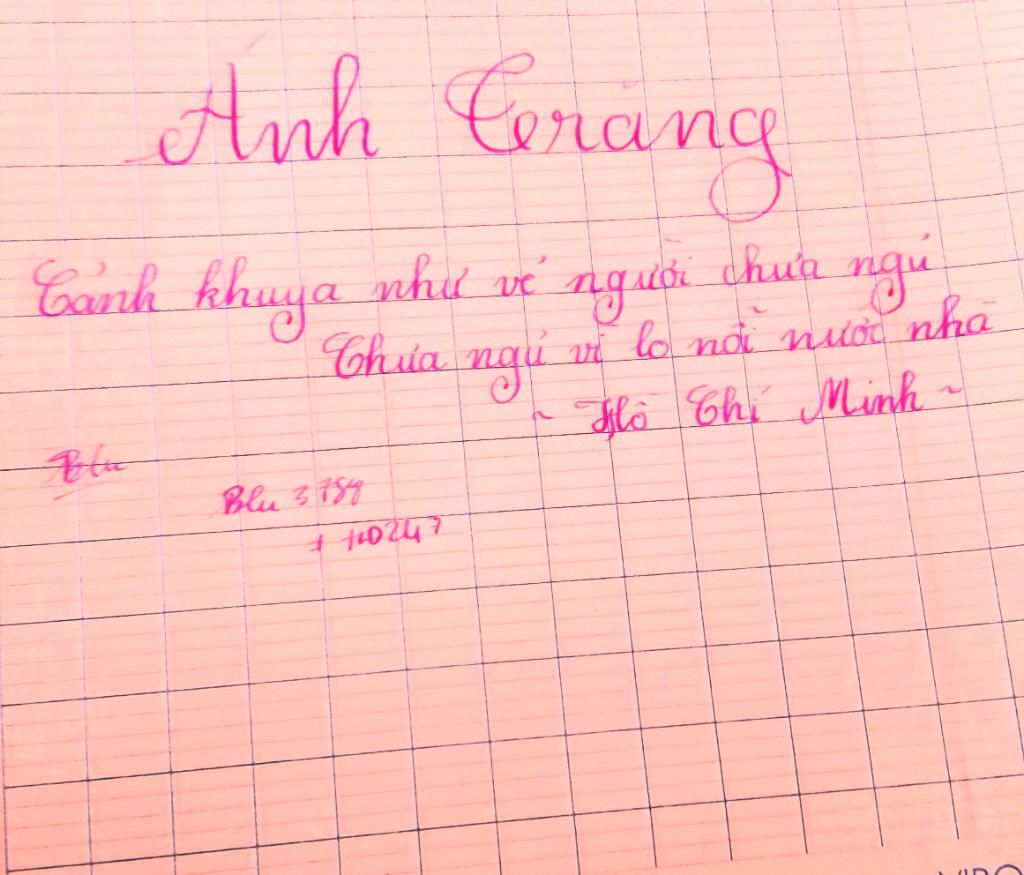 Ánh Trăng
Cảnh khuya như vẽ người chưa ngủ
Chưa ngủ vì lo nỗi nước nhà
~ Hồ Chí Minh ~
Blu
Blu 3784